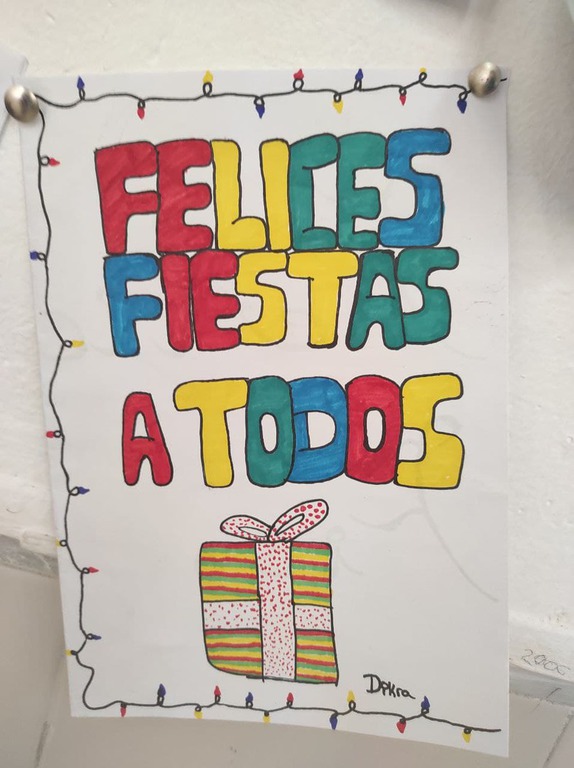 FELICES
FIESTAS
A TODOS